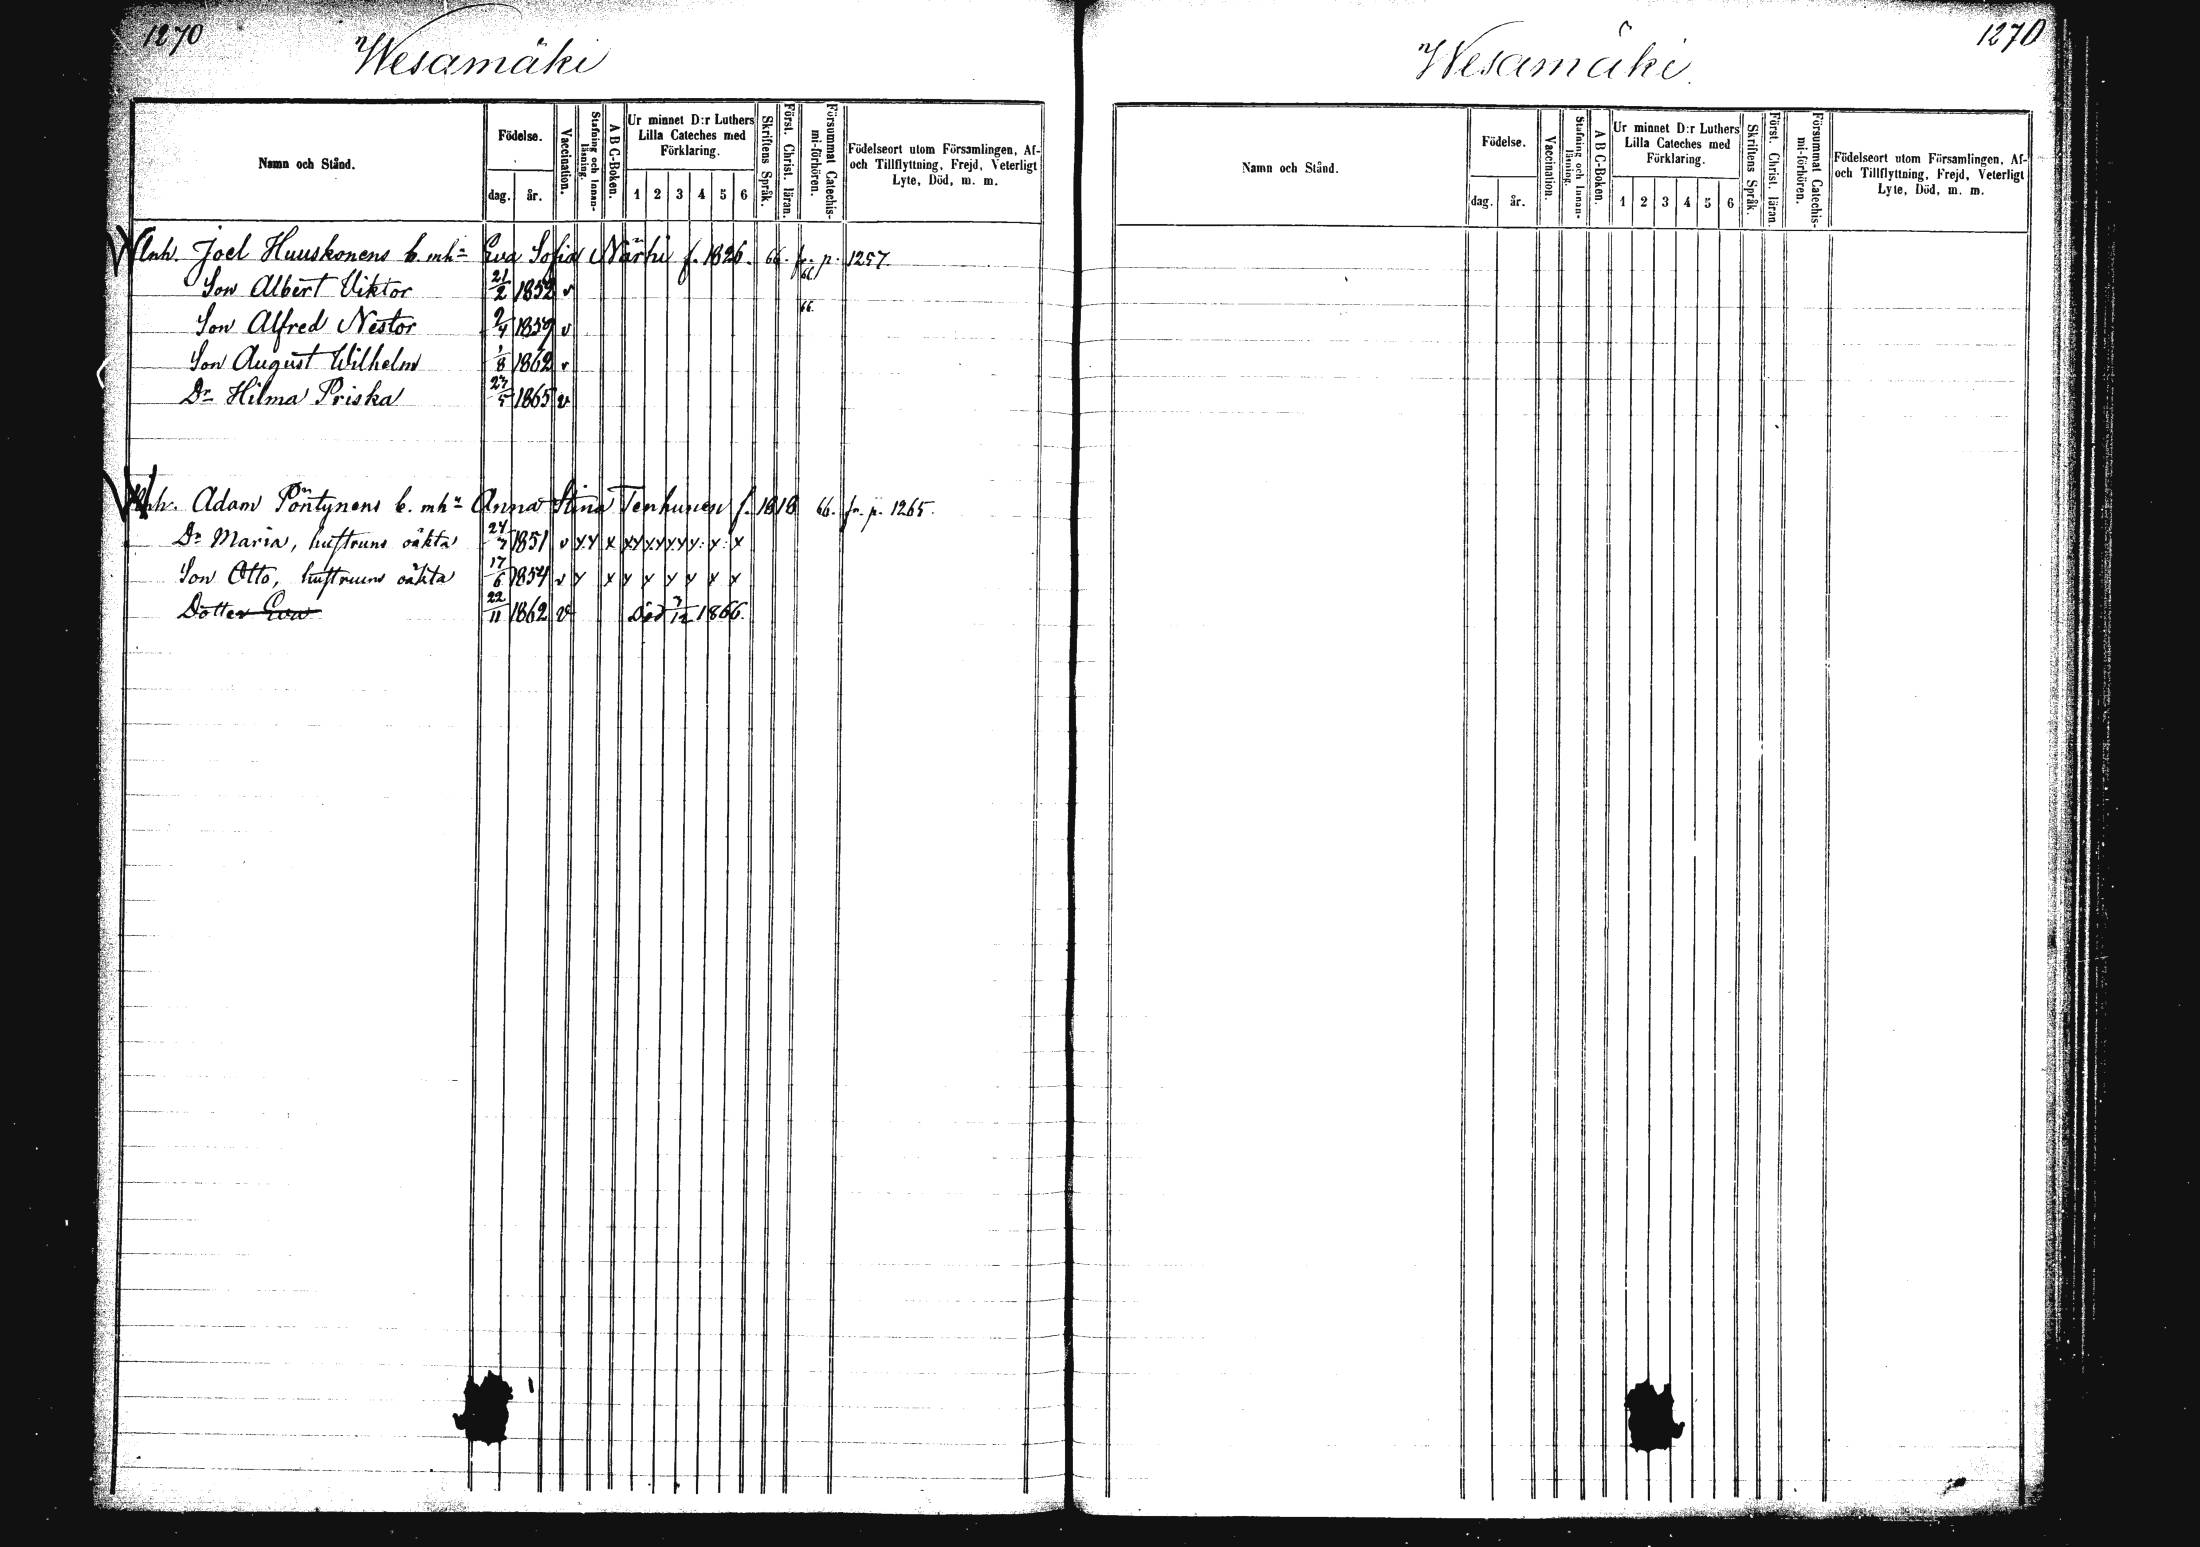 1270
Wesamäki
Namn och Stånd.
Födelse.
dag.
år.
Vaccination.
Stafning och Innan-
läsning.
A B C-Boken.
Ur minnet D:r Luthers
Lilla Cateches med
Förklaring.
1 2 3 4 5 6
Skriftens Språk.
Först. Christ. läran.
Försummat Catechis-
mi-förhören.
Födelseort utom Församlingen, Af-
och Tillflyttning, Frejd, Veterligt
Lyte, Död, m. m.
Inh. Joel Huuskonens b. mhn Eva Sofia Närhi f. 1826. 66. fr. p. 1257.
Son Albert Viktor 21/2 1852 v 66.
Son Alfred Nestor 2/4 1857 v 66.
Son August Wilhelm 1/8 1862 v
Dr Hilma Priska 27/5 1865 v
Inh. Adam Pöntynens b. mhn Anna Stina Tenhunen f. 1818 66. fr. p. 1265.
Dr Maria, hustruns oäkta 24/7 1851 v
Son Otto, hustruns oäkta 17/6 1854 v
Dotter Eva 22/11 1862 v Död 7/12 1866.
1270
Wesamäki
Namn och Stånd.
Födelse.
dag.
år.
Vaccination.
Stafning och Innan-
läsning.
A B C-Boken.
Ur minnet D:r Luthers
Lilla Cateches med
Förklaring.
1 2 3 4 5 6
Skriftens Språk.
Först. Christ. läran
Försummat Catechis-
mi-förhören.
Födelseort utom Församlingen, Af-
och Tillflyttning, Frejd, Veterligt
Lyte, Död, m. m.